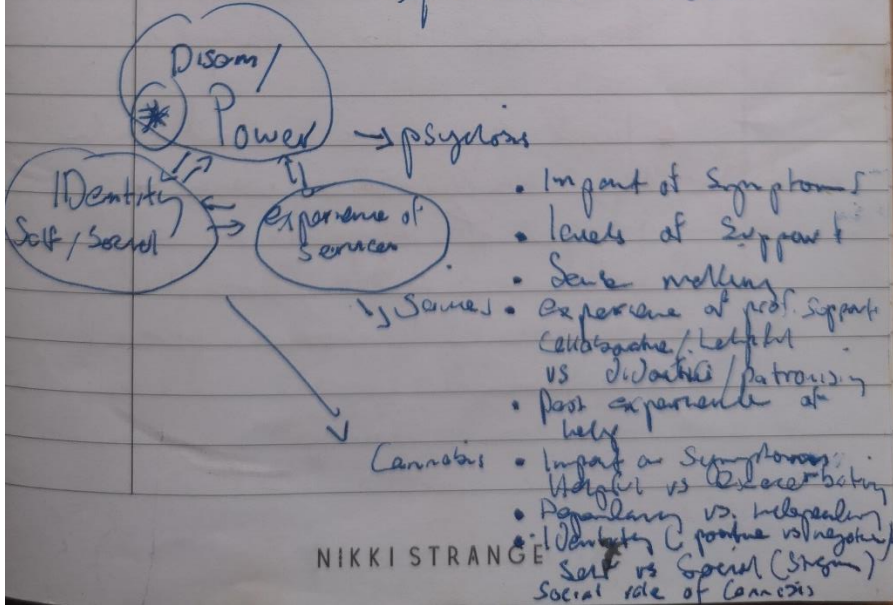 Disom/
Power
→ psychosis
IDentity
Self/Social
experience of
Services
• Impact of Symptoms
• levels of Support
• Sense making
↳ Services • experience of prof. Support
Collaborative/helpful
vs didactic/patronising
• Past experience of
help
Cannabis • Impact on Symptoms
Helpful vs Exacerbating
• Dependancy vs. independancy
• IDentity (positive vs negative)
Self vs Social (Stigma)
Social role of Cannabis
NIKKI STRANGE